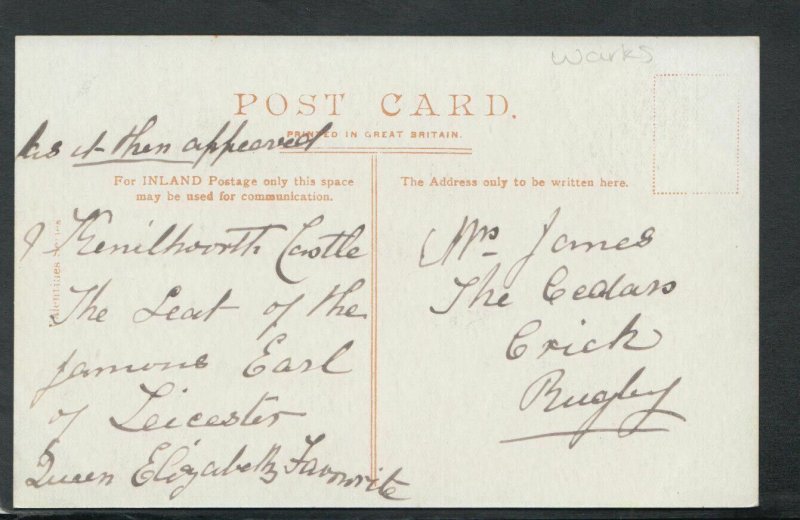 Warks
POST CARD.
PRINTED IN GREAT BRITAIN.
As it then appeared
For INLAND Postage only this space
may be used for communication.
Kenilworth Castle
The Seat of the
famous Earl
of Leicester
Queen Elizabeth Favourite
The Address only to be written here.
Mrs James
The Cedars
Crick
Rugby
Valentines Series